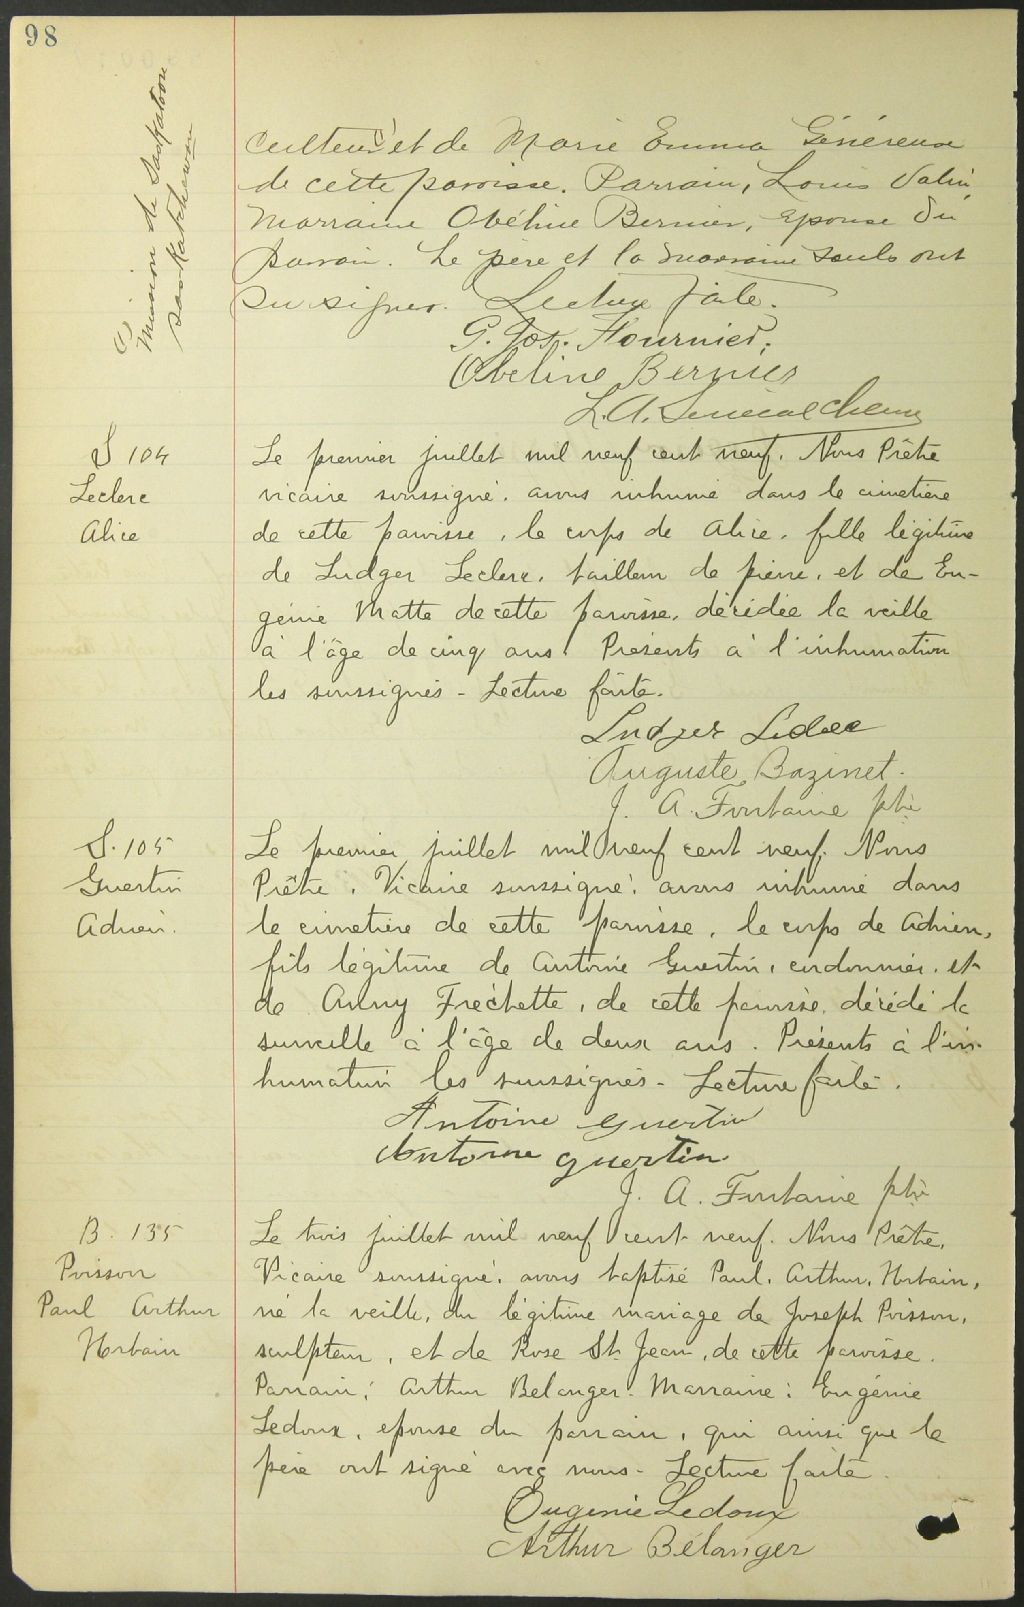 98
(1) Mission de Saskatoon
Saskatchewan
culteur (1) et de Marie Emma Généreux
de cette paroisse. Parrain, Louis Valin
Marraine Obéline Bernier, epouse du
parrain. Le père et la marraine seuls ont
su signer. Lecture faite.
G. Jos. Fournier.
Obeline Bernier
L. A. Senécal
S 104
Leclerc
Alice
Le premier juillet mil neuf cent neuf. Nous Prêtre
vicaire soussigné. avons inhumé dans le cimetière
de cette paroisse, le corps de Alice, fille légitime
de Ludger Leclerc, tailleur de pierre, et de Eu-
génie Matte de cette paroisse, décédée la veille
à l'âge de cinq ans. Présents à l'inhumation
les soussignés - Lecture faite.
Ludger Leclerc
Auguste Bazinet.
J. A. Fontaine ptre
S. 105
Guertin
Adrien.
Le premier juillet mil neuf cent neuf. Nous
Prêtre, Vicaire soussigné, avons inhumé dans
le cimetière de cette paroisse, le corps de Adrien,
fils légitime de Antoine Guertin, cordonnier, et
de Anny Fréchette, de cette paroisse, décédé la
surveille à l'âge de deux ans. Présents à l'in-
humation les soussignés - Lecture faite.
Antoine Guertin
Antoine guertin
J. A. Fontaine ptre
B. 135
Poisson
Paul Arthur
Horbain
Le trois juillet mil neuf cent neuf. Nous Prêtre,
Vicaire soussigné, avons baptisé Paul, Arthur, Horbain,
né la veille, du légitime mariage de Joseph Poisson,
sculpteur, et de Rose St Jean, de cette paroisse.
Parrain: Arthur Belanger. Marraine: Eugénie
Ledoux, epouse du parrain, qui ainsi que le
père ont signé avec nous - Lecture faite.
Eugenie Ledoux
Arthur Bélanger